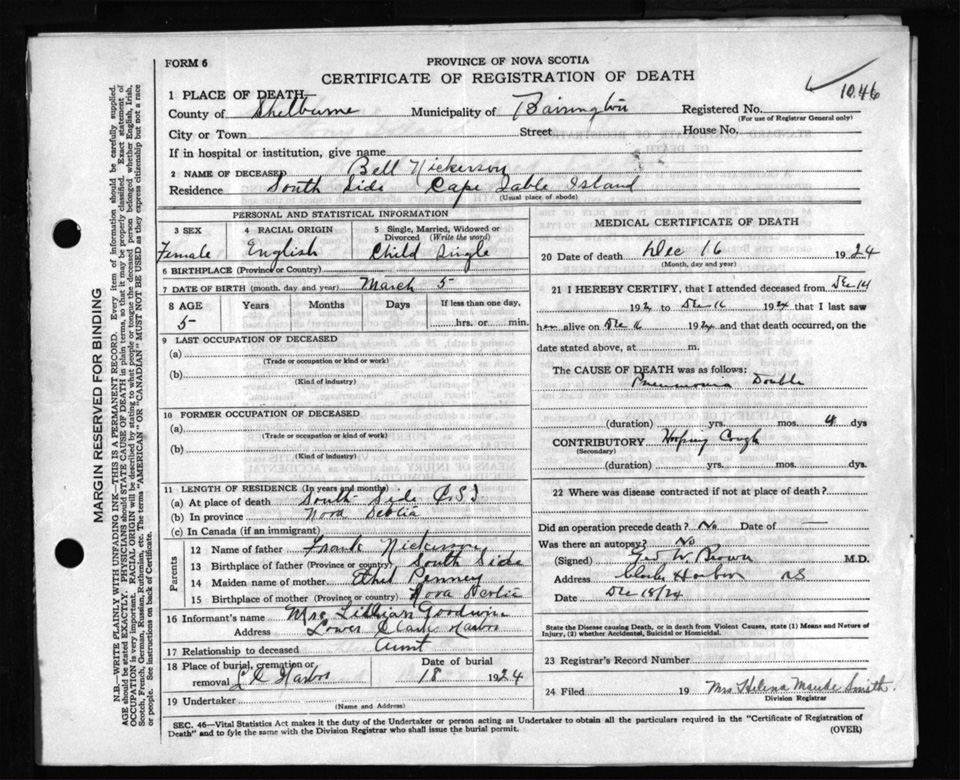 FORM 6
PROVINCE OF NOVA SCOTIA
CERTIFICATE OF REGISTRATION OF DEATH
1046
1 PLACE OF DEATH,
County of Shelburne Municipality of Barrington Registered No.
(For use of Registrar General only)
City or Town Street House No.
If in hospital or institution, give name
2 NAME OF DECEASED Bell Nickerson
Residence South Side Cape Sable Island
(Usual place of abode)
PERSONAL AND STATISTICAL INFORMATION
3 SEX 4 RACIAL ORIGIN 5 Single, Married, Widowed or Divorced (Write the word)
Female English Child Single
6 BIRTHPLACE (Province or Country)
7 DATE OF BIRTH (month, day and year) March 5
8 AGE Years Months Days If less than one day,
5 hrs. or min.
9 LAST OCCUPATION OF DECEASED
(a)
(Trade or occupation or kind of work)
(b)
(Kind of industry)
10 FORMER OCCUPATION OF DECEASED
(a)
(Trade or occupation or kind of work)
(b)
(Kind of industry)
11 LENGTH OF RESIDENCE (In years and months)
(a) At place of death South Side C.S.I
(b) In province Nova Scotia
(c) In Canada (if an immigrant)
Parents
12 Name of father Frank Nickerson
13 Birthplace of father (Province or country) South Side
14 Maiden name of mother Ethel Penney
15 Birthplace of mother (Province or country) Nova Scotia
16 Informant's name Mrs Lillian Goodwin
Address Lower Clark Harbor
17 Relationship to deceased Aunt
18 Place of burial, cremation or removal L C Harbor
Date of burial 18 1924
19 Undertaker
(Name and Address)
MEDICAL CERTIFICATE OF DEATH
20 Date of death Dec 16 1924
(Month, day and year)
21 I HEREBY CERTIFY, that I attended deceased from Dec 14
192 to Dec 16 1924 that I last saw
her alive on Dec 16 1924 and that death occurred, on
the date stated above, at m.
The CAUSE OF DEATH was as follows:
Pneumonia Double
(duration) yrs. mos. 4 dys
CONTRIBUTORY Hooping Cough
(Secondary)
(duration) yrs. mos. dys.
22 Where was disease contracted if not at place of death?
Did an operation precede death? No Date of —
Was there an autopsy? No
(Signed) Geo W Brown M.D.
Address Clarks Harbour NS
Date Dec 18/24
State the Disease causing Death, or in death from Violent Causes, state (1) Means and Nature of
Injury, (2) whether Accidental, Suicidal or Homicidal.
23 Registrar's Record Number
24 Filed 19 Mrs Helena Maude Smith.
Division Registrar
SEC. 46—Vital Statistics Act makes it the duty of the Undertaker or person acting as Undertaker to obtain all the particulars required in the "Certificate of Registration of
Death" and to fyle the same with the Division Registrar who shall issue the burial permit.
(OVER)
MARGIN RESERVED FOR BINDING
N.B.—WRITE PLAINLY WITH UNFADING INK—THIS IS A PERMANENT RECORD. Every item of information should be carefully supplied.
AGE should be stated EXACTLY. PHYSICIANS should STATE CAUSE OF DEATH in plain terms, so that it may be properly classified. Exact statement of
OCCUPATION is very important. RACIAL ORIGIN will be described by stating to what people or tongue the deceased person belonged whether English, Irish,
Scotch, French, German, Russian, Ruthenian, etc. The terms "AMERICAN" OR "CANADIAN" MUST NOT BE USED as they express citizenship but not a race
or people. See instructions on back of Certificate.